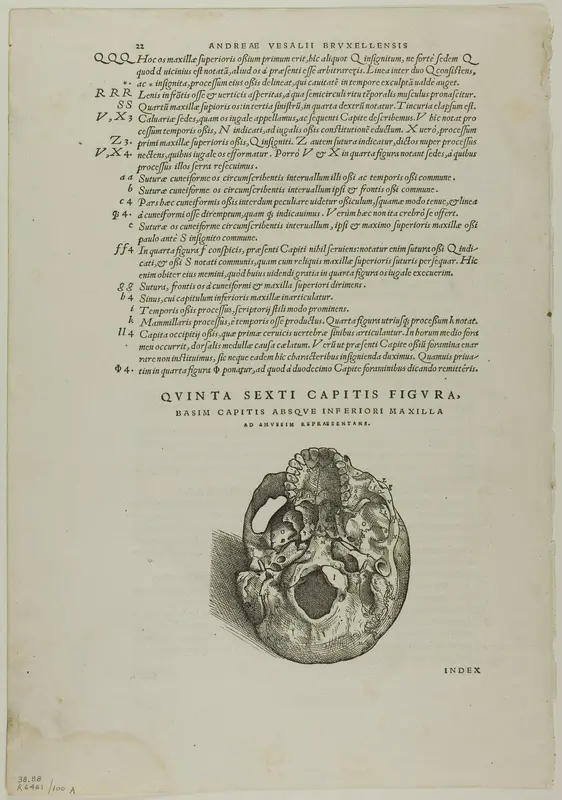 22 ANDREAE VESALII BRVXELLENSIS
QQQ Hoc os maxillæ superioris oßium primum erit, hic aliquot Q insignitum, ne forté sedem Q
quod d uicinius est notatū, aliud os à præsenti esse arbitrareris. Linea inter duo Q consistens,
*. ac * insignita, processum eius oßis delineat, qui cauitatē in tempore exculptā ualde auget.
RRR Lenis in frōtis osse & uerticis asperitas, à qua semicirculi ritu tēporalis musculus pronascitur.
SS Quartū maxillæ supioris os: in tertia sinistrū, in quarta dextrū notatur. T incuria elapsum est.
V, X 3 Caluariæ sedes, quam os iugale appellamus, ac sequenti Capite describemus. V hic notat pro
cessum temporis oßis, N indicati, ad iugalis oßis constitutionē eductum. X uerò, processum
Z 3. primi maxillæ superioris oßis, Q insigniti. Z autem sutura indicatur, dictos nuper processus
V, X 4. nectens, quibus iugale os efformatur. Porrò V & X in quarta figura notant sedes, à quibus
processus illos serra resecuimus.
a a Suturæ cuneiforme os circumscribentis interuallum illi oßi ac temporis oßi commune.
b Suturæ cuneiforme os circumscribentis interuallum ipsi & frontis oßi commune.
c 4 Pars hæc cuneiformis oßis interdum peculiare uidetur oßiculum, squamæ modo tenue, & linea
4. à cuneiformi osse diremptum, quam indicauimus. Verùm hæc non ita crebrò se offert.
e Suturæ os cuneiforme circumscribentis interuallum, ipsi & maximo superioris maxillæ oßi
paulo antè S insignito commune.
ff 4 In quarta figura f conspicis, præsenti Capiti nihil seruiens: notatur enim sutura oßi Q indi-
cati, & oßi S notati communis, quam cum reliquis maxillæ superioris suturis persequar. Hic
enim obiter eius memini, quòd huius uidendi gratia in quarta figura os iugale execuerim.
g g Sutura, frontis os à cuneiformi & maxilla superiori dirimens.
h 4 Sinus, cui capitulum inferioris maxillæ inarticulatur.
i Temporis oßis processus, scriptorij stili modo prominens.
k Mammillaris processus, è temporis osse productus. Quarta figura utriusq; processum k notat.
ll 4 Capita occipitij oßis, quæ primæ ceruicis uertebræ sinibus articulantur. In horum medio fora
men occurrit, dorsalis medullæ causa cælatum. Verū ut præsenti Capite oßiū foramina enar
rare non instituimus, sic neque eadem hic characteribus insignienda duximus. Quamuis priua-
Φ 4. tim in quarta figura Φ ponatur, ad quod à duodecimo Capite foraminibus dicando remittēris.
QVINTA SEXTI CAPITIS FIGVRA,
BASIM CAPITIS ABSQVE INFERIORI MAXILLA
AD AMVSSIM REPRAESENTANS.
INDEX
38.88
R6461/100 A